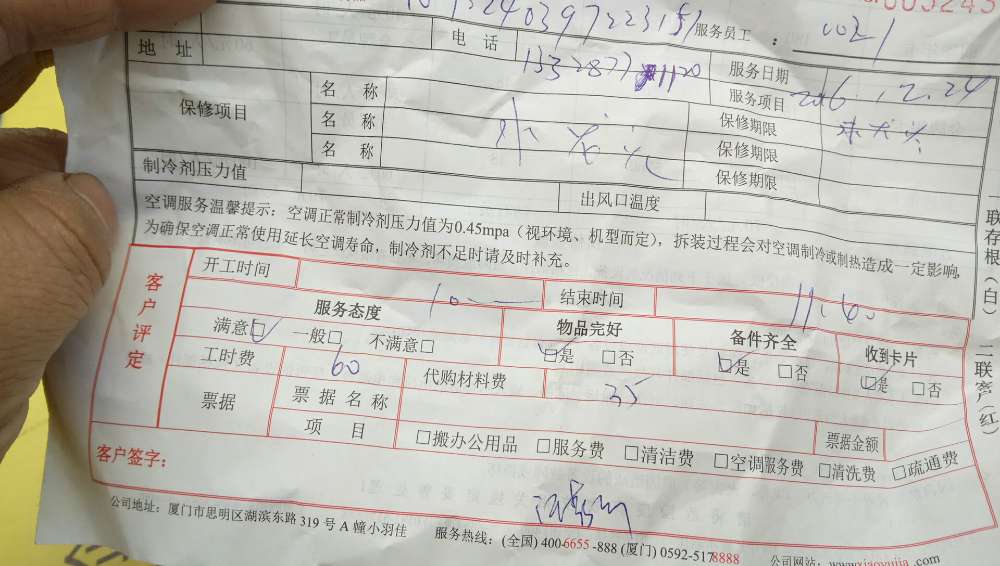 服务员工：0021
地 址 电 话 服务日期 2016.12.24
保修项目 名 称 服务项目
名 称 保修期限
名 称 保修期限
保修期限
制冷剂压力值 出风口温度
空调服务温馨提示：空调正常制冷剂压力值为0.45mpa（视环境、机型而定），拆装过程会对空调制冷或制热造成一定影响，
为确保空调正常使用延长空调寿命，制冷剂不足时请及时补充。
客户评定
开工时间 10 结束时间
服务态度 物品完好 备件齐全 收到卡片
满意☑ 一般□ 不满意□ ☑是 □否 ☑是 □否 ☑是 □否
工时费 60 代购材料费 35
票据 票 据 名 称
项 目 □搬办公用品 □服务费 □清洁费 □空调服务费 □清洗费 □疏通费
票据金额
客户签字：
公司地址：厦门市思明区湖滨东路 319 号 A 幢小羽佳 服务热线：(全国) 400-6655-888 (厦门) 0592-5178888 公司网站：www.xiaoyujia.com
一联存根（白）
二联客户（红）